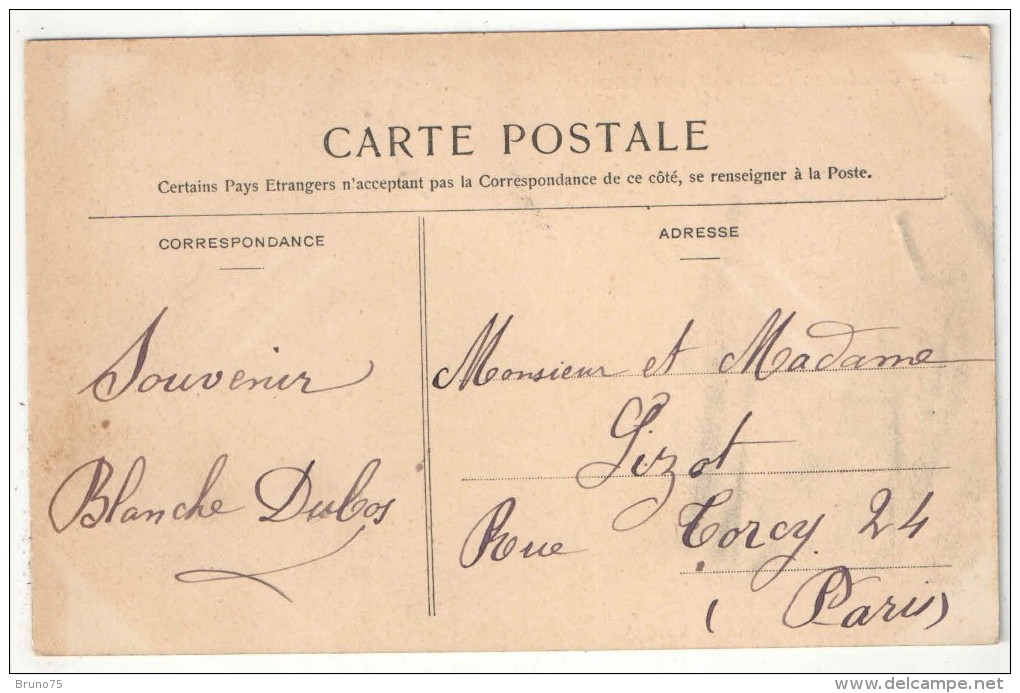 CARTE POSTALE
Certains Pays Etrangers n'acceptant pas la Correspondance de ce côté, se renseigner à la Poste.
CORRESPONDANCE
Souvenir
Blanche Dubos
ADRESSE
Monsieur et Madame
Lizot
Rue Torcy 24
(Paris)
Bruno75
www.delcampe.net